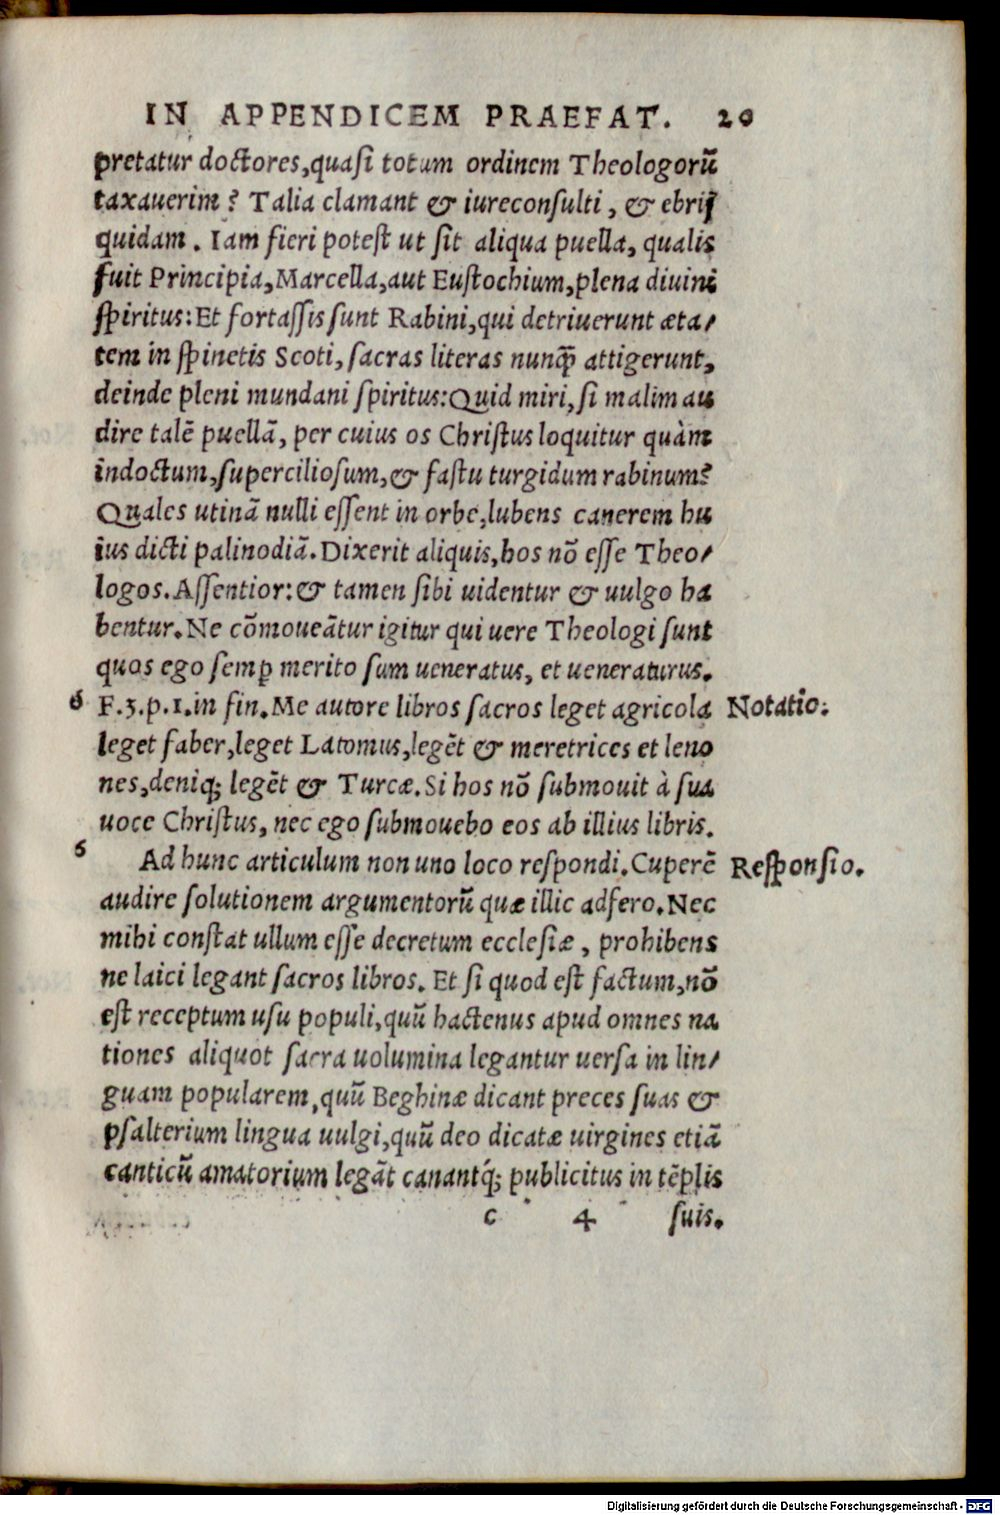 IN APPENDICEM PRAEFAT. 20
pretatur doctores,quasi totum ordinem Theologorū
taxauerim? Talia clamant & iureconsulti, & ebrij
quidam. Iam fieri potest ut sit aliqua puella, qualis
fuit Principia,Marcella,aut Eustochium,plena diuini
spiritus:Et fortassis sunt Rabini,qui detriuerunt æta/
tem in spinetis Scoti,sacras literas nunꝗ̃ attigerunt,
deinde pleni mundani spiritus:Quid miri,si malim au
dire talē puellā, per cuius os Christus loquitur quàm
indoctum,superciliosum,& fastu turgidum rabinum?
Quales utinā nulli essent in orbe,lubens canerem hu
ius dicti palinodiā.Dixerit aliquis,hos nō esse Theo/
logos.Assentior:& tamen sibi uidentur & uulgo ha
bentur.Ne cōmoueātur igitur qui uere Theologi sunt
quos ego semp̱ merito sum ueneratus, et ueneraturus.
6 F.3.p.1.in fin.Me autore libros sacros leget agricola Notatio:
leget faber,leget Latomus,legēt & meretrices et leno
nes,deniq; legēt & Turcæ.Si hos nō submouit à sua
uoce Christus, nec ego submouebo eos ab illius libris.
6 Ad hunc articulum non uno loco respondi.Cuperē Responsio.
audire solutionem argumentorū quæ illic adfero.Nec
mihi constat ullum esse decretum ecclesiæ, prohibens
ne laici legant sacros libros. Et si quod est factum,nō
est receptum usu populi,quū hactenus apud omnes na
tiones aliquot sacra uolumina legantur uersa in lin/
guam popularem,quū Beghinæ dicant preces suas &
psalterium lingua uulgi,quū deo dicatæ uirgines etiā
canticū amatorium legāt canantq́; publicitus in tēplis
c 4 suis.
Digitalisierung gefördert durch die Deutsche Forschungsgemeinschaft - DFG